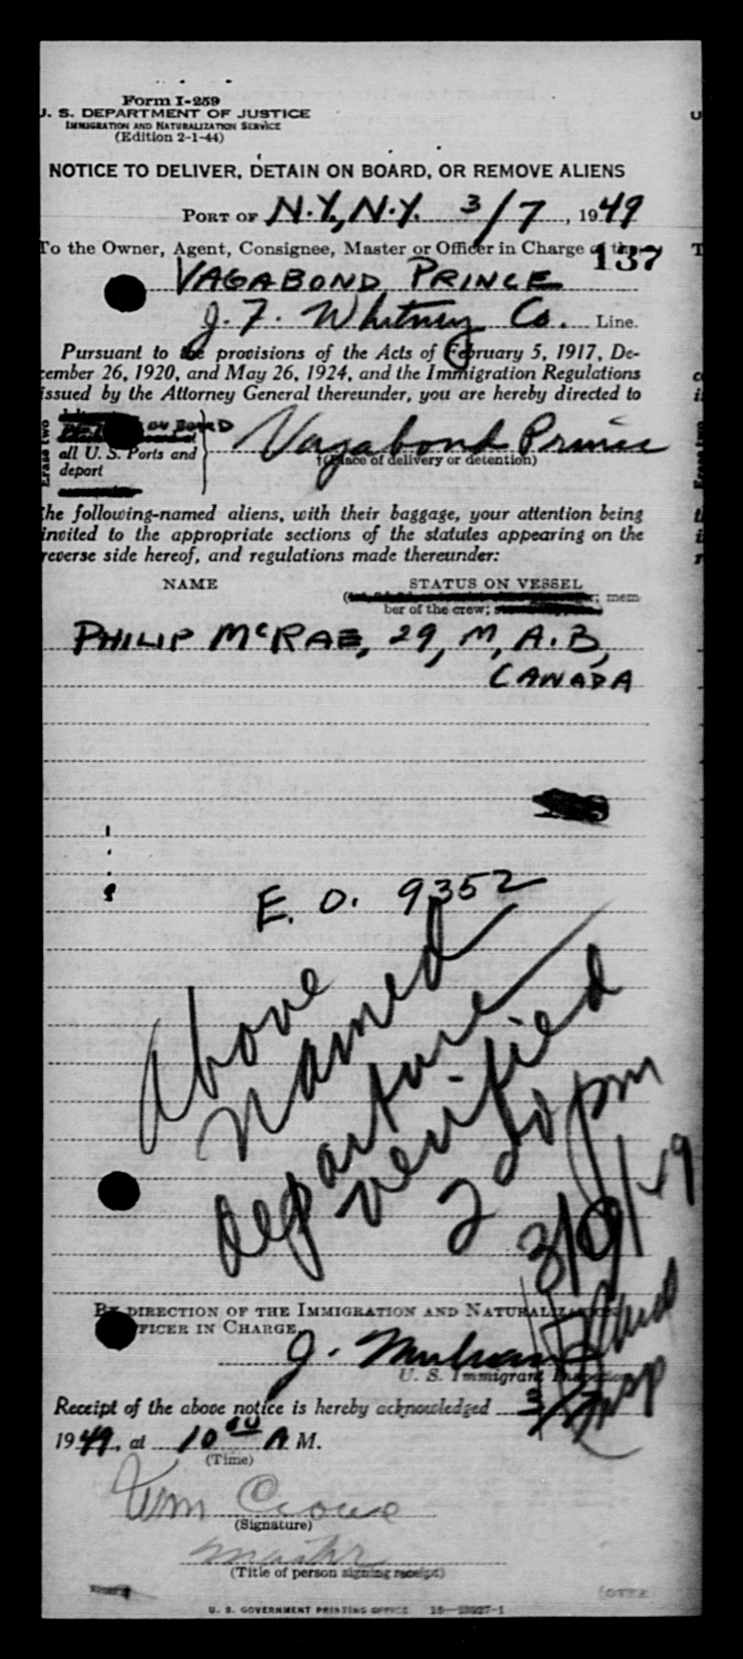 Form I-259
U. S. DEPARTMENT OF JUSTICE
IMMIGRATION AND NATURALIZATION SERVICE
(Edition 2-1-44)
NOTICE TO DELIVER, DETAIN ON BOARD, OR REMOVE ALIENS
PORT OF N.Y., N.Y. 3/7, 1949
To the Owner, Agent, Consignee, Master or Officer in Charge of the
137
VAGABOND PRINCE
J. F. Whitney Co. Line.
Pursuant to the provisions of the Acts of February 5, 1917, De-
cember 26, 1920, and May 26, 1924, and the Immigration Regulations
issued by the Attorney General thereunder, you are hereby directed to
Erase two
ON BOARD
all U. S. Ports and
deport
Vagabond Prince
†(Place of delivery or detention)
the following-named aliens, with their baggage, your attention being
invited to the appropriate sections of the statutes appearing on the
reverse side hereof, and regulations made thereunder:
NAME STATUS ON VESSEL
mem-
ber of the crew;
PHILIP McRAE, 29, M, A.B,
CANADA
E. O. 9352
Above
named
departure
verified
2 20 pm
3/9/49
BY DIRECTION OF THE IMMIGRATION AND NATURALIZATION
OFFICER IN CHARGE
J.
U. S. Immigrant Inspector
Insp
Receipt of the above notice is hereby acknowledged 3/7
1949, at 10 A M.
(Time)
Wm Crowe
(Signature)
Master
(Title of person signing receipt)
(OVER
U. S. GOVERNMENT PRINTING OFFICE